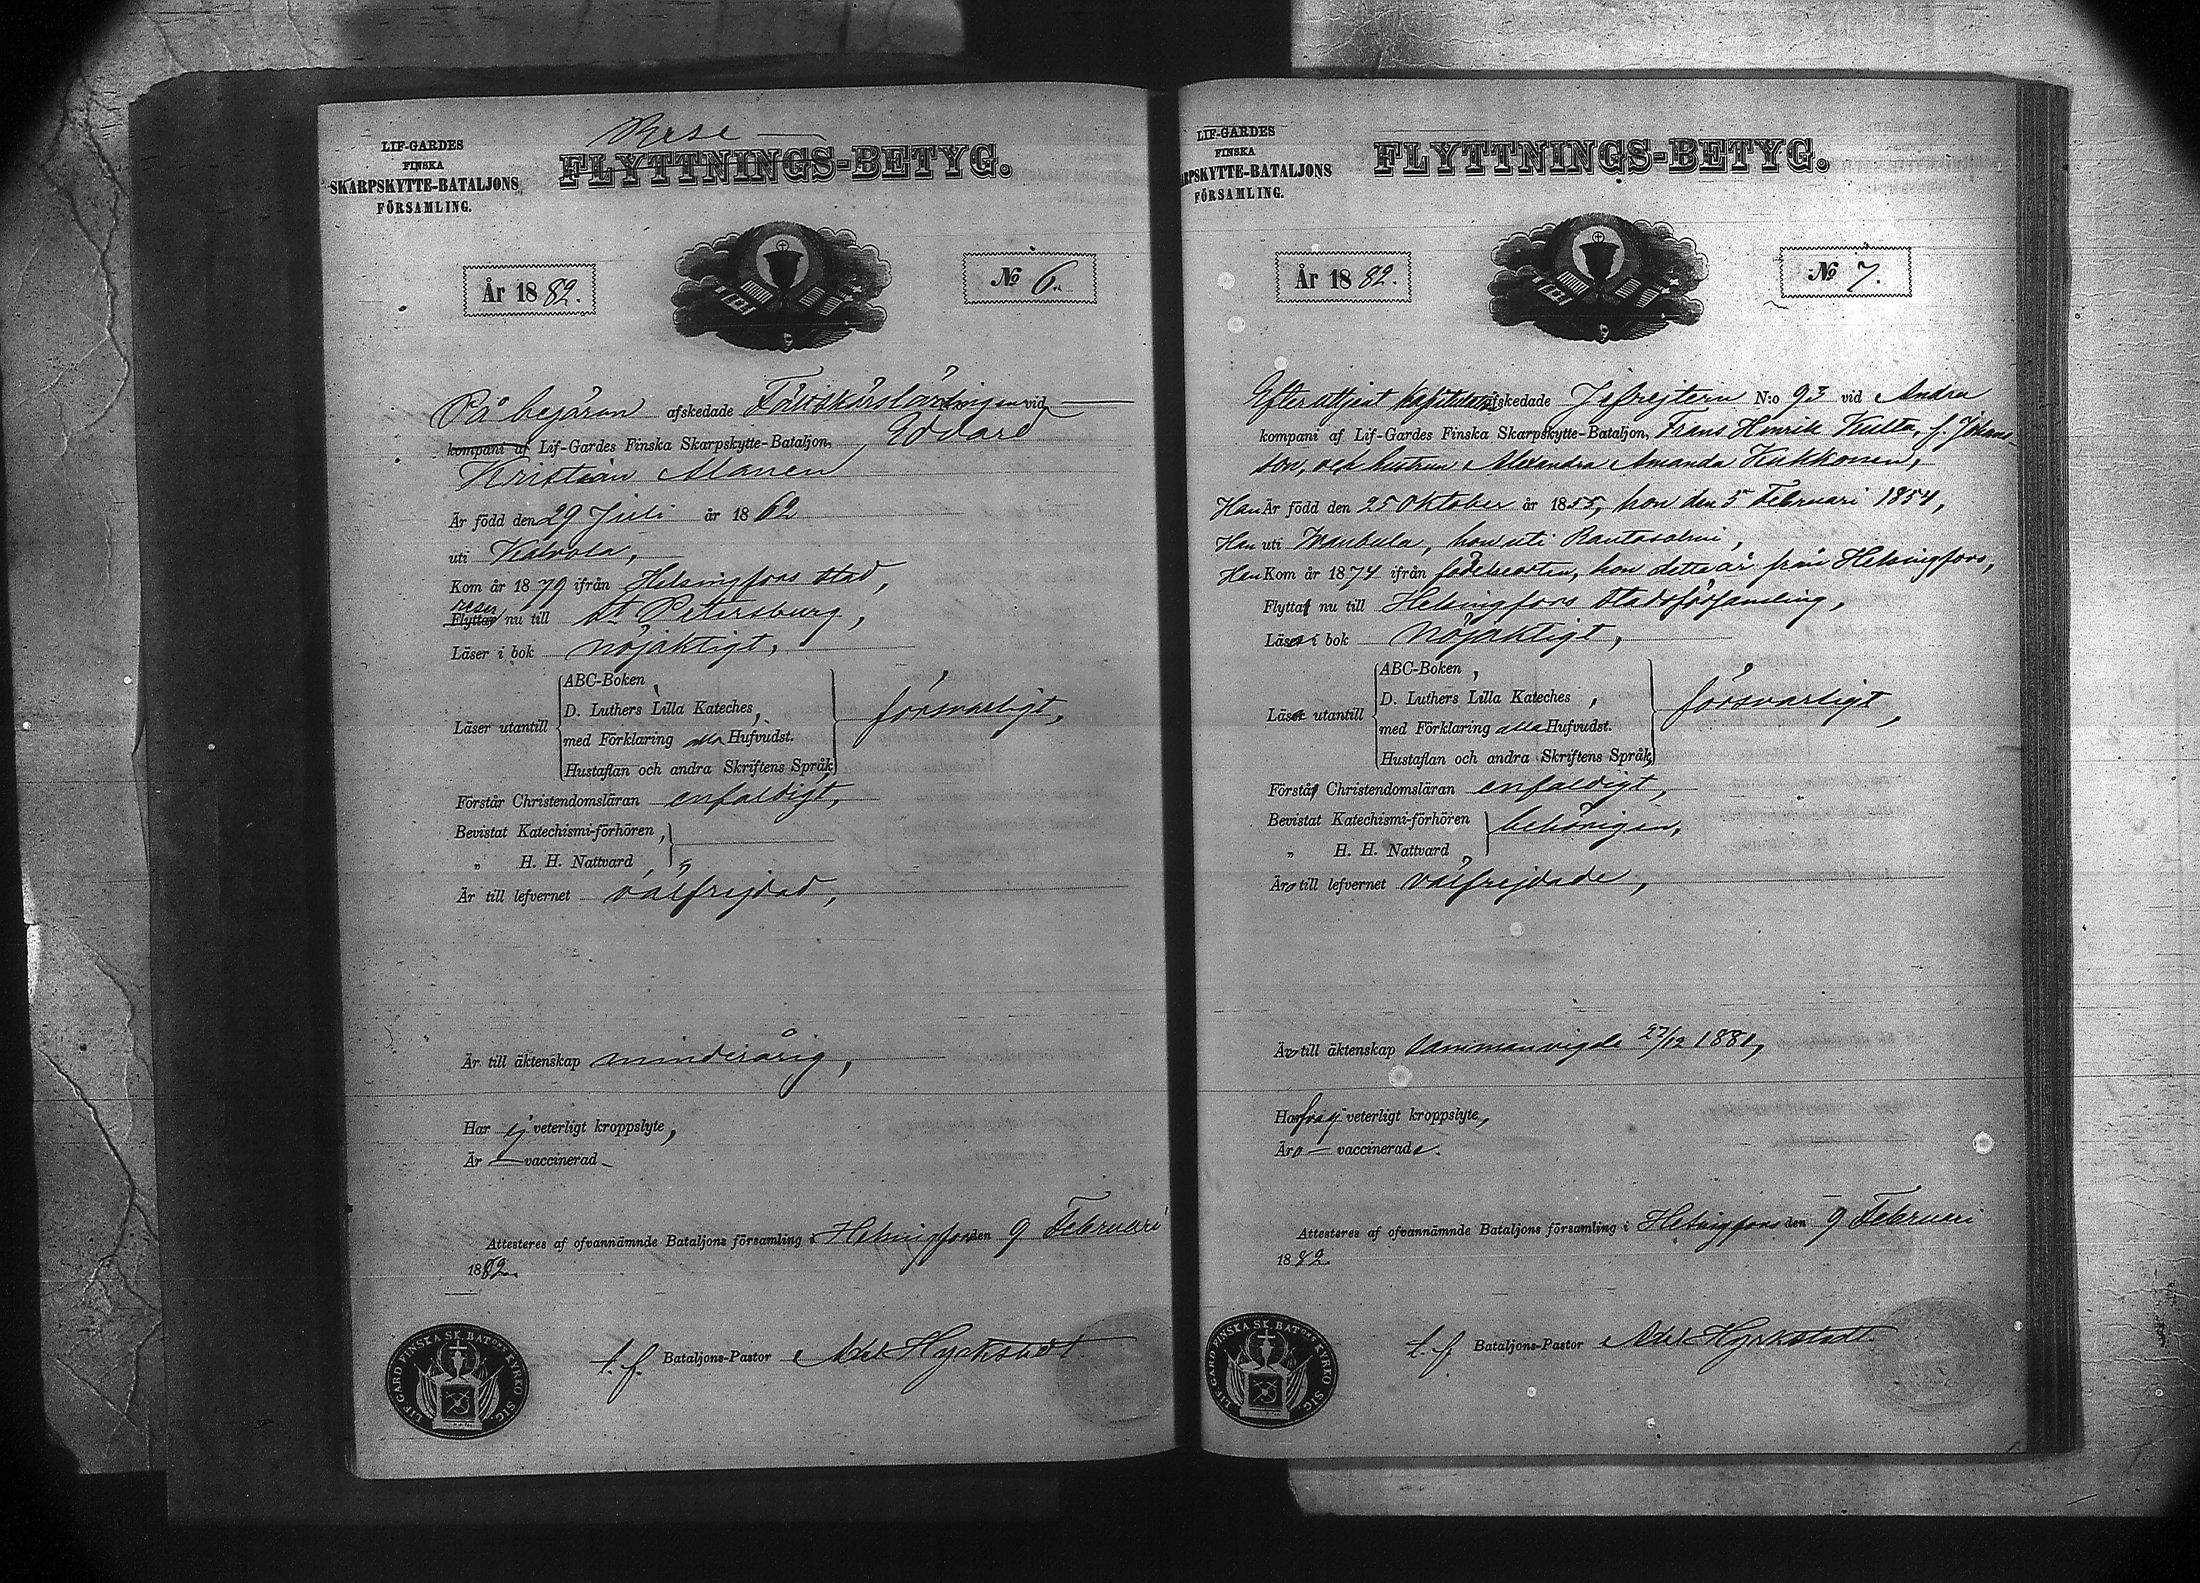 Rese
LIF-GARDES
FINSKA
SKARPSKYTTE-BATALJONS
FÖRSAMLING.
FLYTTNINGS-BETYG.
År 1882.
№ 6.
På begäran afskedade Fältskärslärlingen vid
kompani af Lif-Gardes Finska Skarpskytte-Bataljon, Edvard
Kristian Alanen
Är född den 29 Juli år 1862
uti Kalvola,
Kom år 1879 ifrån Helsingfors stad,
reser
Flyttar nu till St Petersburg,
Läser i bok nöjaktigt,
ABC-Boken,
D. Luthers Lilla Kateches,
Läser utantill
med Förklaring alla Hufvudst.
Hustaflan och andra Skriftens Språk,
försvarligt,
Förstår Christendomsläran enfaldigt,
Bevistat Katechismi-förhören,
„ H. H. Nattvard,
Är till lefvernet välfrejdad,
Är till äktenskap minderårig,
Har ej veterligt kroppslyte,
Är — vaccinerad
Attesteres af ofvannämnde Bataljons församling i Helsingfors den 9 Februari
1882.
LIF-GARD FINSKA SK. BATONS KYRKO SIG.
t. f. Bataljons-Pastor Axel Hyrkstedt
LIF-GARDES
FINSKA
ARPSKYTTE-BATALJONS
FÖRSAMLING.
FLYTTNINGS-BETYG.
År 1882.
№ 7.
Efter uttjent kapitulation afskedade Jefrejtern N:o 93 vid Andra
kompani af Lif-Gardes Finska Skarpskytte-Bataljon, Frans Henrik Kulta, f. Johans
son, och hustrun Alexandra Amanda Kukkonen,
Han Är född den 25 Oktober år 1855, hon den 5 Februari 1854,
Han uti Vambula, hon uti Rantasalmi,
Han Kom år 1874 ifrån födelseorten, hon detta år från Helsingfors,
Flytta nu till Helsingfors stadsförsamling,
Läsa i bok nöjaktigt,
ABC-Boken,
D. Luthers Lilla Kateches,
Läsa utantill
med Förklaring alla Hufvudst.
Hustaflan och andra Skriftens Språk,
försvarligt,
Förstå Christendomsläran enfaldigt,
Bevistat Katechismi-förhören
„ H. H. Nattvard
behörigen,
Äro till lefvernet välfrejdade,
Äro till äktenskap sammanvigde 27/12 1881,
Hafva ej veterligt kroppslyte,
Äro — vaccinerade.
Attesteres af ofvannämnde Bataljons församling i Helsingfors den 9 Februari
1882.
LIF-GARD FINSKA SK. BATONS KYRKO SIG.
t. f. Bataljons-Pastor Axel Hyrkstedt